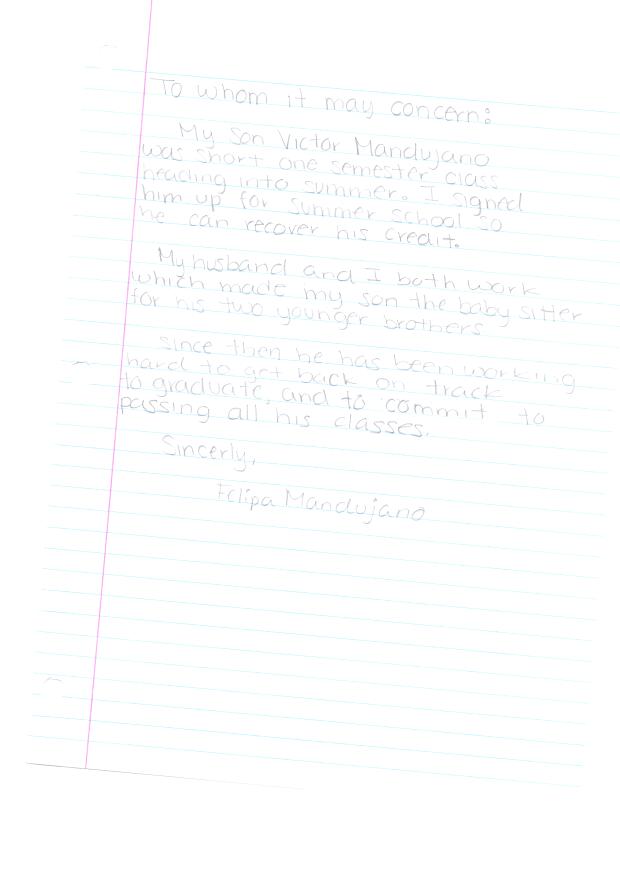 To whom it may concern:
My Son Victor Mandujano
was short one semester class
heading into summer. I signed
him up for summer school so
he can recover his credit.
My husband and I both work
which made my son the baby sitter
for his two younger brothers
since then he has been working
hard to get back on track
to graduate, and to commit to
passing all his classes.
Sincerly,
Felipa Mandujano